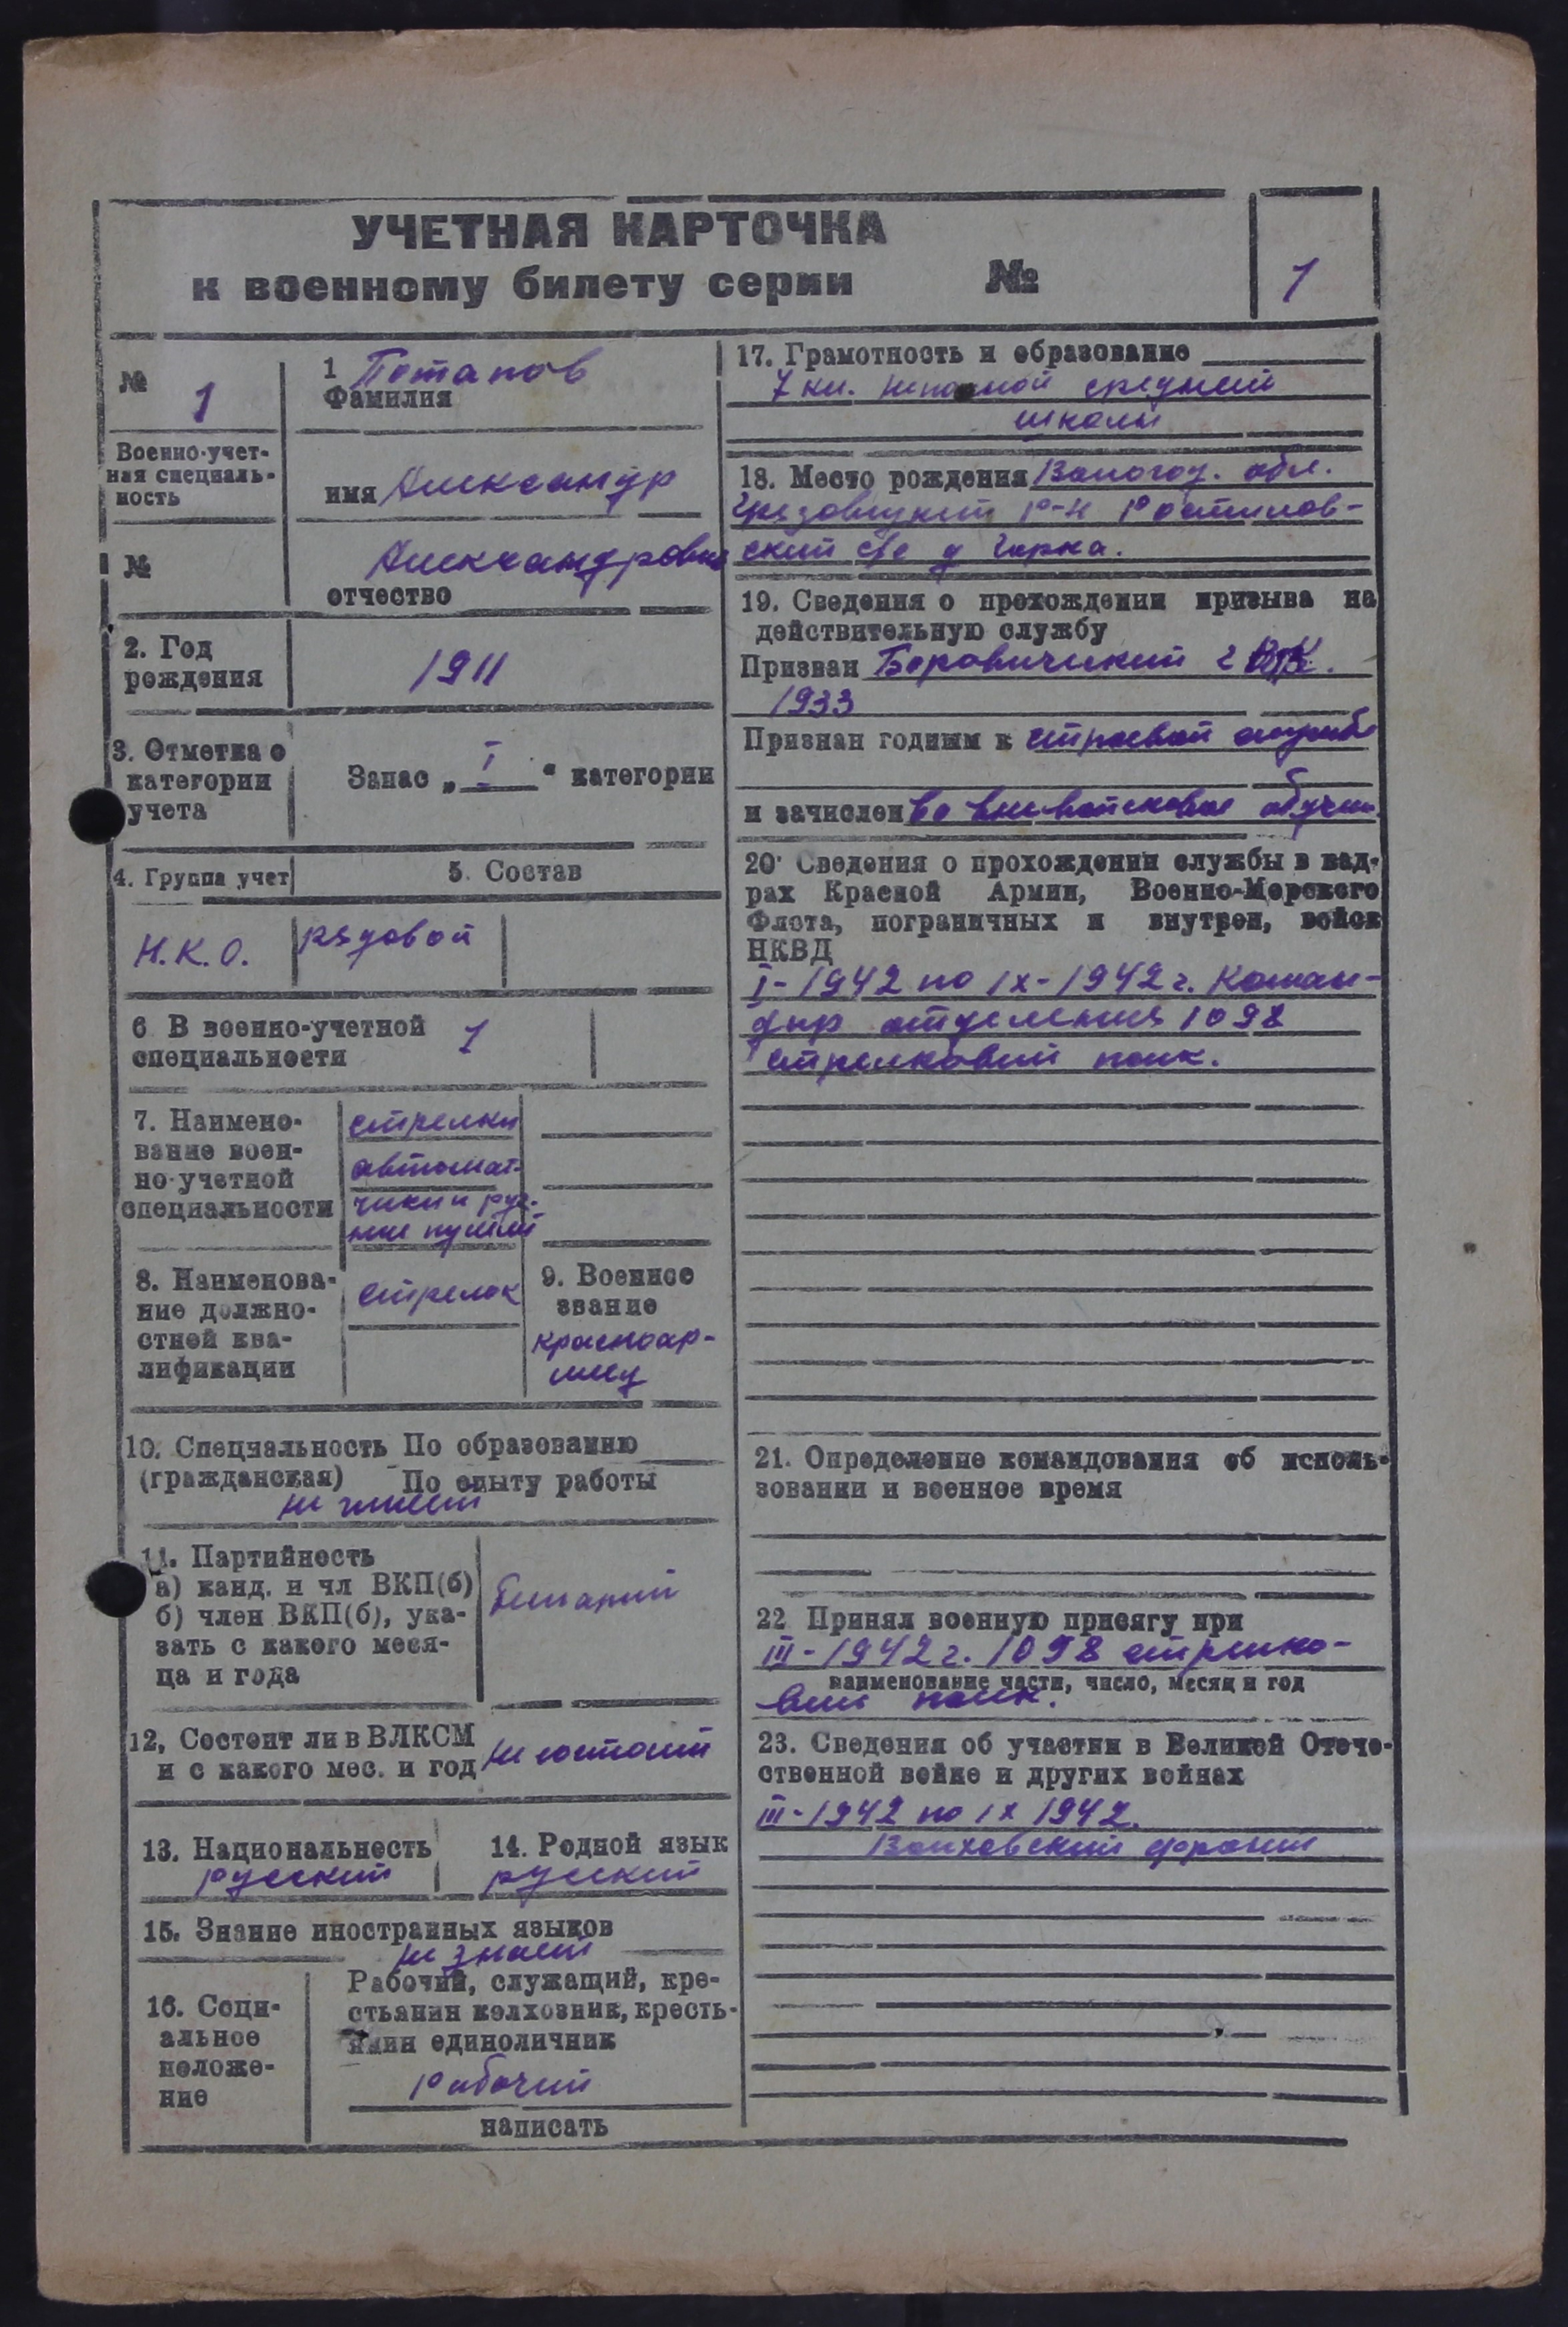 УЧЕТНАЯ КАРТОЧКА
к военному билету серии №
1
№ 1
Военно-учет-
ная специаль-
ность
№
1 Потапов
Фамилия
имя Александр
Александрович
отчество
2. Год
рождения
1911
3. Отметка о
категории
учета
Запас „ I “ категории
4. Группа учет
5. Состав
Н.К.О.
рядовой
6 В военно-учетной
специальности
1
7. Наимено-
вание воен-
но-учетной
специальности
стрелки
автомат-
чики и руч-
ные пулем
8. Наименова-
ние должно-
стной ква-
лификации
стрелок
9. Военное
звание
красноар-
меец
10. Специальность По образованию
(гражданская) По опыту работы
не имеет
11. Партийность
а) канд. и чл ВКП(б)
б) член ВКП(б), ука-
зать с какого меся-
ца и года
беспартий
12, Состоит ли в ВЛКСМ
и с какого мес. и год
не состоит
13. Национальность
русский
14. Родной язык
русский
15. Знание иностранных языков
не знает
16. Соци-
альное
положе-
ние
Рабочий, служащий, кре-
стьянин колхозник, кресть-
янин единоличник
Рабочий
написать
17. Грамотность и образование
7 кл. неполной средней
школы
18. Место рождения Вологод. обл.
Грязовецкий р-н Ростилов-
ский с/с д Горка.
19. Сведения о прохождении призыва на
действительную службу
Призван Боровичский г РВК.
1933
Признан годным к строевой службе
и зачислен во вневойсковое обучен.
20. Сведения о прохождении службы в кад-
рах Красной Армии, Военно-Морского
Флота, пограничных и внутрен, войск
НКВД
I-1942 по IX-1942 г. Коман-
дир отделения 1098
стрелковый полк.
21. Определение командования об исполь-
зовании и военное время
22 Принял военную присягу при
III-1942 г. 1098 стрелко-
наименование части, число, месяц и год
вый полк.
23. Сведения об участии в Великой Отече-
ственной войне и других войнах
III-1942 по IX 1942.
Волховский фронт